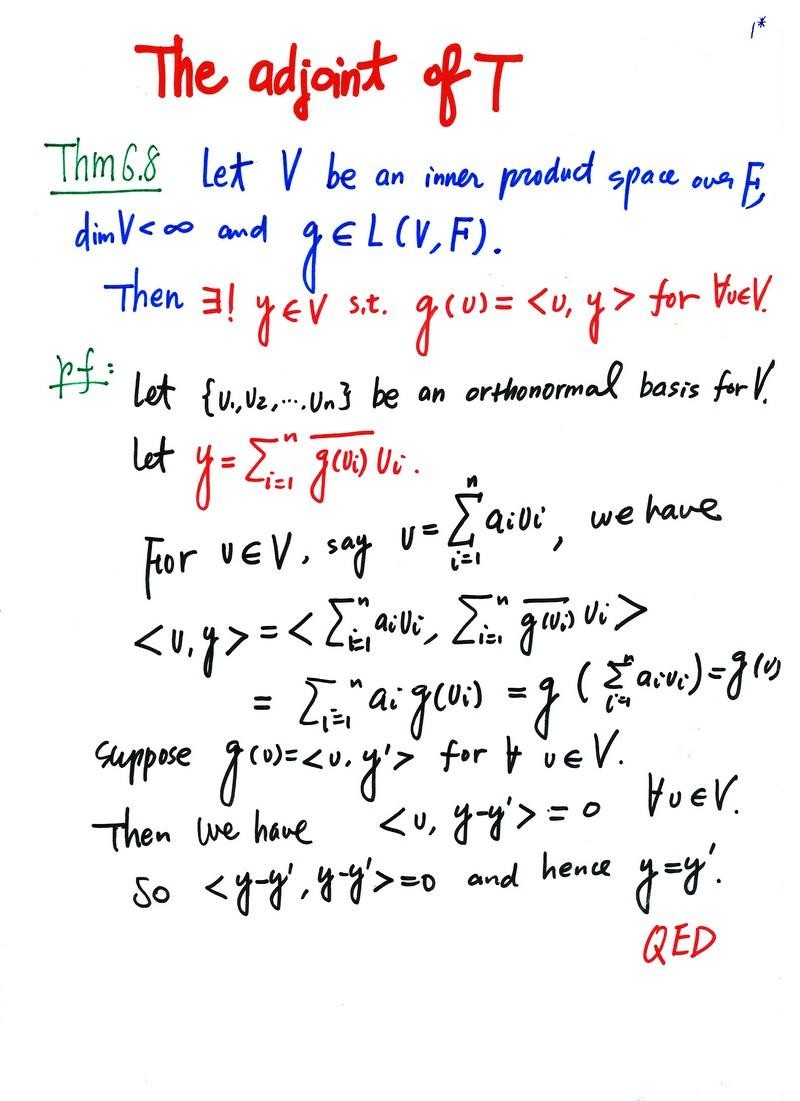 1*
The adjoint of T
Thm 6.8 Let V be an inner product space over F,
dim V < ∞ and g ∈ L(V, F).
Then ∃! y ∈ V s.t. g(υ) = <υ, y> for ∀υ∈V.
pf: Let {υ₁, υ₂, ... υₙ} be an orthonormal basis for V.
Let y = ∑ᵢ₌₁ⁿ \overline{g(υᵢ)} υᵢ.
For υ ∈ V, say υ = ∑ᵢ₌₁ⁿ aᵢυᵢ, we have
<υ, y> = <∑ᵢ₌₁ⁿ aᵢυᵢ, ∑ᵢ₌₁ⁿ \overline{g(υᵢ)} υᵢ>
= ∑ᵢ₌₁ⁿ aᵢ g(υᵢ) = g (∑ᵢ₌₁ⁿ aᵢυᵢ) = g(υ)
suppose g(υ) = <υ, y'> for ∀ υ ∈ V.
Then we have <υ, y-y'> = 0 ∀υ ∈ V.
So <y-y', y-y'> = 0 and hence y = y'.
QED